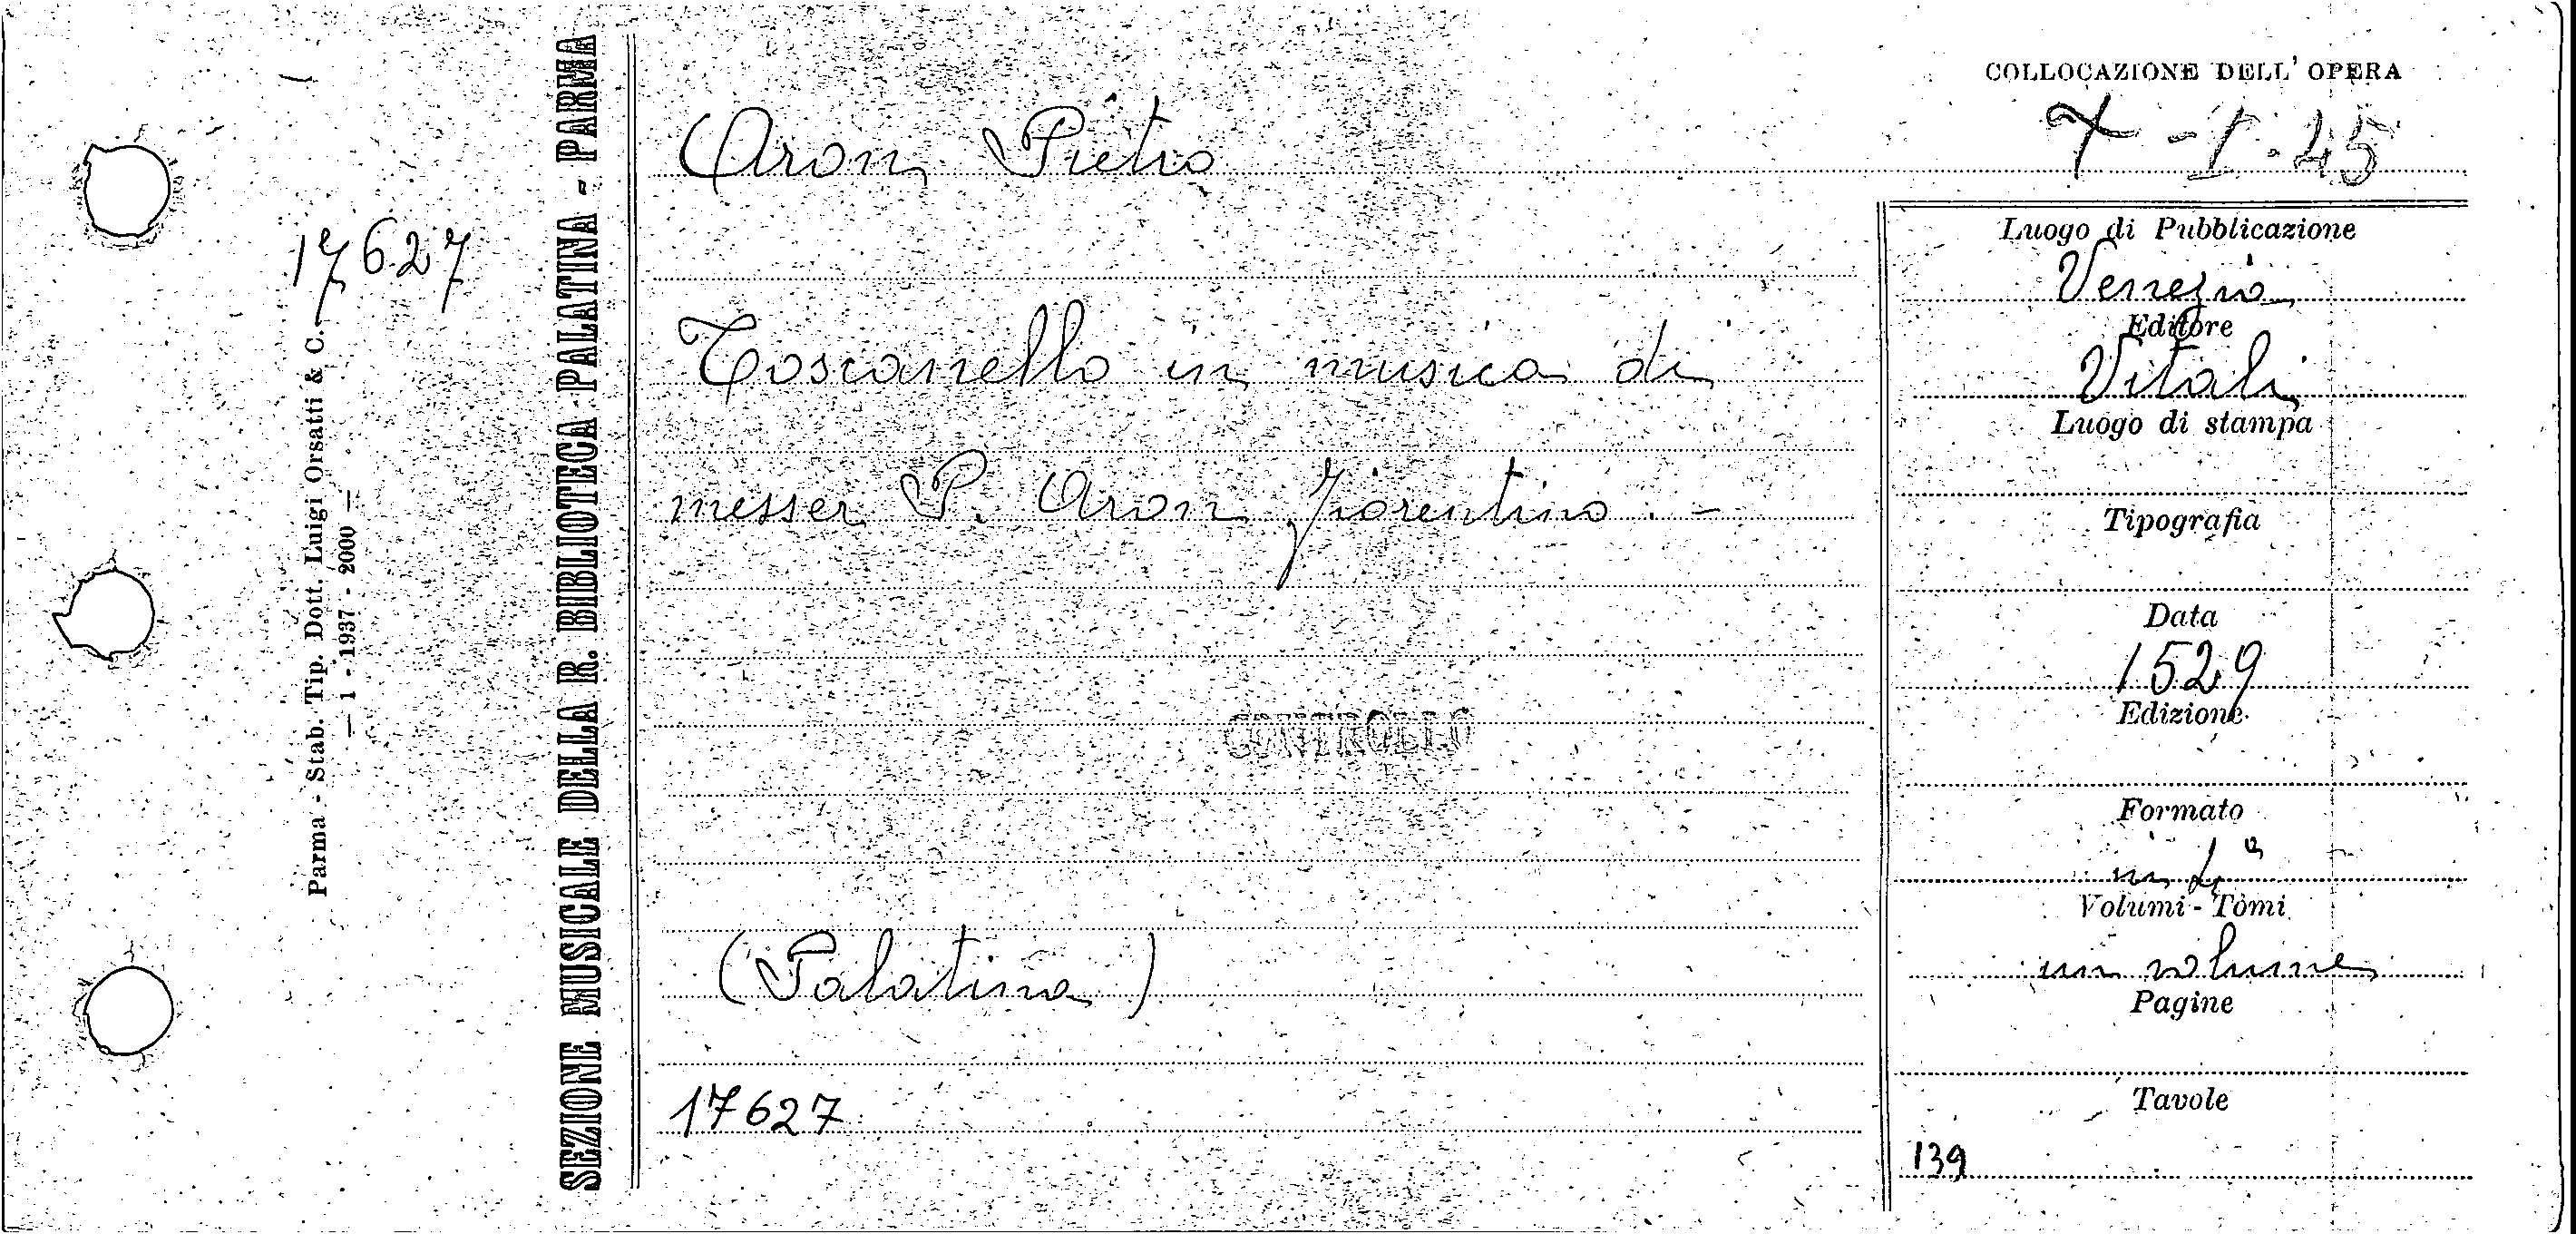 COLLOCAZIONE DELL' OPERA
Aron Pietro
7 - I - 45
17627
Toscanello in musica di
messer P. Aron fiorentino. -
CONTROLLO
(Palatina)
17627
Luogo di Pubblicazione
Venezia
Editore
Vitali
Luogo di stampa
Tipografia
Data
1529
Edizione
Formato
in 4°
Volumi - Tomi
un volume
Pagine
Tavole
139
SEZIONE MUSICALE DELLA R. BIBLIOTECA PALATINA - PARMA
Parma - Stab. Tip. Dott. Luigi Orsatti & C.
— 1 - 1937 - 2000 —